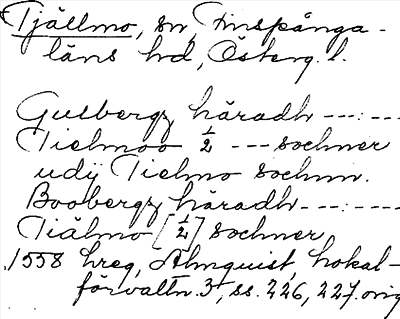 Tjällmo, sn, Finspånga-
läns hd, Österg. l.
Gulbergz häradh ---:---
Tielmoo ½ --- sochner
udÿ Tielmo sochnn.
Boobergz häradh ---:---
Tiälmo [½] sochner
1558 hreg, Almquist, Lokal-
förvaltn. 3, ss. 226, 227. orig